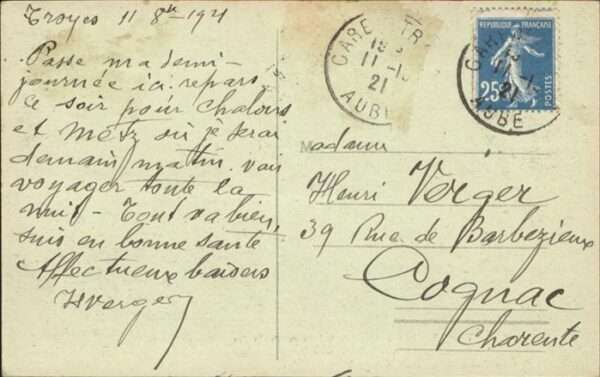 Troyes 11 8bre 1921
Passe ma demi-
journée ici repars
ce soir pour Chalons
et Metz où je serai
demain matin. vais
voyager toute la
nuit - Tout va bien,
suis en bonne santé
Affectueux baisers
HVerger
GARE TR
11 -10
21
AUBE
REPUBLIQUE FRANÇAISE
25c
POSTES
GARE
21
AUBE
Madame
Henri Verger
39 Rue de Barbezieux
Cognac
Charente